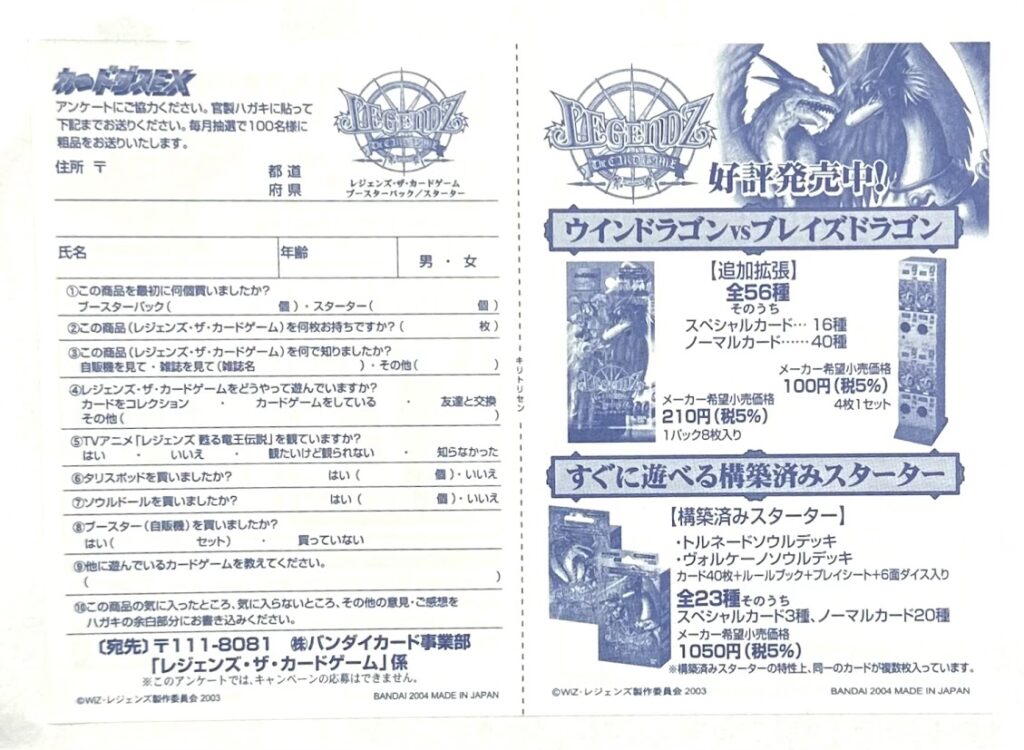 カードダスEX
アンケートにご協力ください。官製ハガキに貼って
下記までお送りください。毎月抽選で100名様に
粗品をお送りいたします。
住所 〒
都 道
府 県
LEGENDZ
THE CARD GAME
第一章
レジェンズ・ザ・カードゲーム
ブースターパック/スターター
氏名
年齢
男 ・ 女
①この商品を最初に何個買いましたか?
ブースターパック( 個)・スターター( 個)
②この商品(レジェンズ・ザ・カードゲーム)を何枚お持ちですか?( 枚)
③この商品(レジェンズ・ザ・カードゲーム)を何で知りましたか?
自販機を見て・雑誌を見て(雑誌名 )・その他( )
④レジェンズ・ザ・カードゲームをどうやって遊んでいますか?
カードをコレクション ・ カードゲームをしている ・ 友達と交換
その他( )
⑤TVアニメ「レジェンズ 甦る竜王伝説」を観ていますか?
はい ・ いいえ ・ 観たいけど観られない ・ 知らなかった
⑥タリスポッドを買いましたか? はい( 個)・いいえ
⑦ソウルドールを買いましたか? はい( 個)・いいえ
⑧ブースター(自販機)を買いましたか?
はい( セット) ・ 買っていない
⑨他に遊んでいるカードゲームを教えてください。
( )
⑩この商品の気に入ったところ、気に入らないところ、その他の意見・ご感想を
ハガキの余白部分にお書き込みください。
〔宛先〕〒111-8081 ㈱バンダイカード事業部
「レジェンズ・ザ・カードゲーム」係
※このアンケートでは、キャンペーンの応募はできません。
©WiZ・レジェンズ製作委員会 2003
BANDAI 2004 MADE IN JAPAN
キリトリセン
LEGENDZ
THE CARD GAME
第一章
好評発売中!
ウインドラゴンvsブレイズドラゴン
【追加拡張】
全56種
そのうち
スペシャルカード… 16種
ノーマルカード…… 40種
メーカー希望小売価格
100円(税5%)
4枚1セット
メーカー希望小売価格
210円(税5%)
1パック8枚入り
すぐに遊べる構築済みスターター
【構築済みスターター】
・トルネードソウルデッキ
・ヴォルケーノソウルデッキ
カード40枚+ルールブック+プレイシート+6面ダイス入り
全23種そのうち
スペシャルカード3種、ノーマルカード20種
メーカー希望小売価格
1050円(税5%)
※構築済みスターターの特性上、同一のカードが複数枚入っています。
©WiZ・レジェンズ製作委員会 2003
BANDAI 2004 MADE IN JAPAN